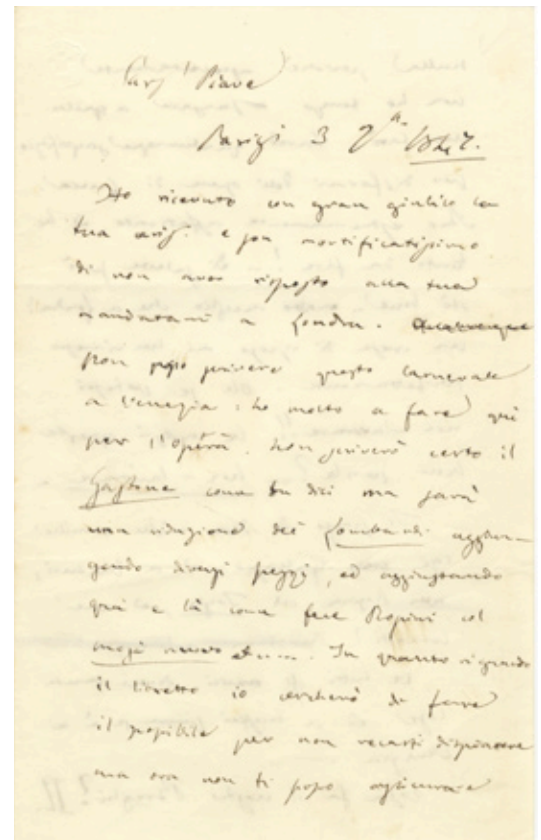 Caro Piave
Parigi 3 1847.
Ho ricevuto con gran giubilo la
tua e son mortificatissimo
di non aver risposto alla tua
mandatami a Londra.
Non posso scrivere questo Carnevale
a Venezia: ho molto a fare qui
per l'opéra. Non scriverò certo il
Gastone come tu dici ma sarà
una riduzione dei Lombardi aggiun-
gendo diversi pezzi, ed aggiustando
quà e là come fece Rossini col
Mosé nuovo In quanto riguarda
il libretto io cercherò di fare
il possibile per non recarti dispiacere
ma ora non ti posso assicurare